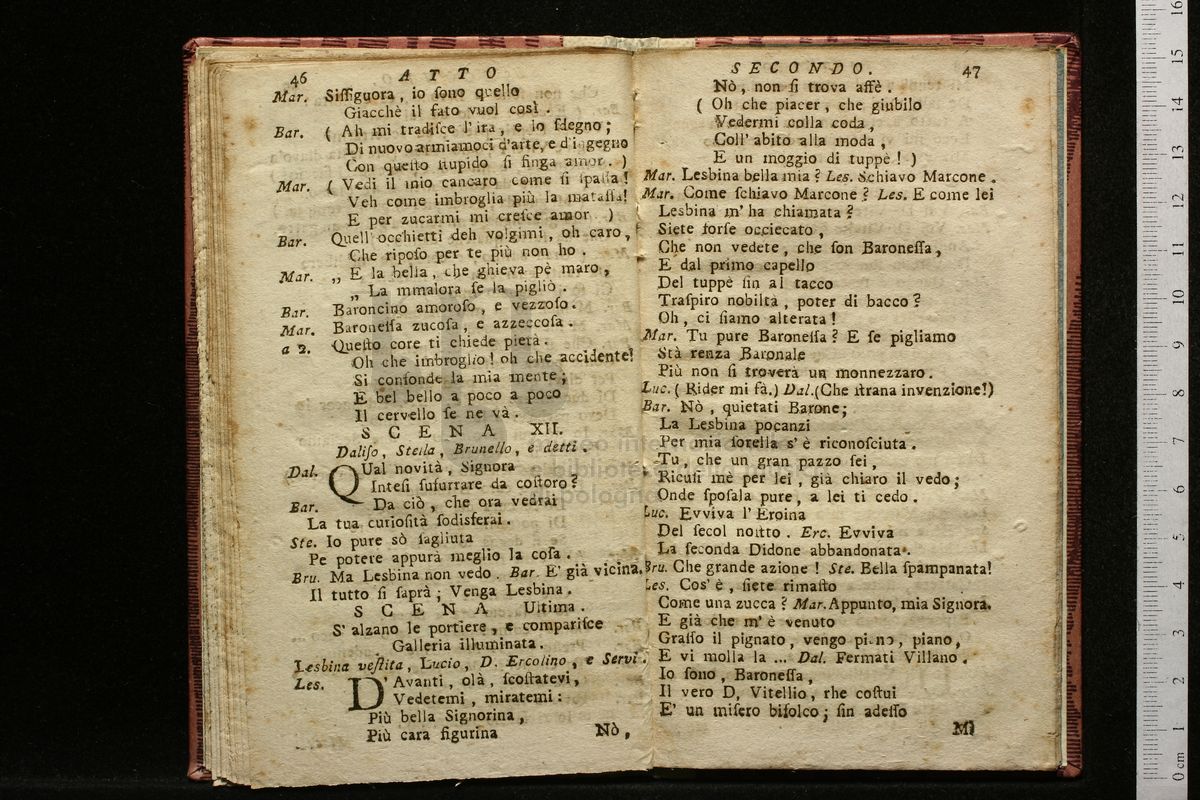 46 ATTO
Mar. Siſſiguora, io ſono quello
Giacchè il fato vuol così.
Bar. ( Ah mi tradiſce l'ira, e lo ſdegno;
Di nuovo armiamoci d'arte, e d'ingegno
Con queſto ſtupido ſi finga amor. )
Mar. ( Vedi il mio cancaro come ſi ſpaſſa!
Veh come imbroglia più la mataſſa!
E per zucarmi mi creſce amor )
Bar. Quell' occhietti deh volgimi, oh caro,
Che ripoſo per te più non ho.
Mar. „ E la bella, che ghieva pè maro,
„ La mmalora ſe la pigliò.
Bar. Baroncino amoroſo, e vezzoſo.
Mar. Baroneſſa zucoſa, e azzeccoſa.
a 2. Queſto core ti chiede pietà.
Oh che imbroglio! oh che accidente!
Si confonde la mia mente;
E bel bello a poco a poco
Il cervello ſe ne và.
SCENA XII.
Daliſo, Stella, Brunello, e detti.
Dal. QUal novità, Signora
Inteſi ſuſurrare da coſtoro?
Bar. Da ciò, che ora vedrai
La tua curioſità ſodisferai.
Ste. Io pure sò ſagliuta
Pe potere appurà meglio la coſa.
Bru. Ma Lesbina non vedo. Bar. E' già vicina.
Il tutto ſi ſaprà; Venga Lesbina.
SCENA Ultima.
S' alzano le portiere, e compariſce
Galleria illuminata.
Lesbina veſtita, Lucio, D. Ercolino, e Servi.
Les. D'Avanti, olà, ſcoſtatevi,
Vedetemi, miratemi:
Più bella Signorina,
Più cara figurina
Nò,
SECONDO. 47
Nò, non ſi trova affè.
( Oh che piacer, che giubilo
Vedermi colla coda,
Coll' abito alla moda,
E un moggio di tuppè! )
Mar. Lesbina bella mia? Les. Schiavo Marcone.
Mar. Come ſchiavo Marcone? Les. E come lei
Lesbina m' ha chiamata?
Siete forſe occiecato,
Che non vedete, che ſon Baroneſſa,
E dal primo capello
Del tuppè ſin al tacco
Traſpiro nobiltà, poter di bacco?
Oh, ci ſiamo alterata!
Mar. Tu pure Baroneſſa? E ſe pigliamo
Stà renza Baronale
Più non ſi troverà un monnezzaro.
Luc. ( Rider mi fà.) Dal.(Che ſtrana invenzione!)
Bar. Nò, quietati Barone;
La Lesbina pocanzi
Per mia ſorella s' è riconoſciuta.
Tu, che un gran pazzo ſei,
Ricuſi mè per lei, già chiaro il vedo;
Onde ſpoſala pure, a lei ti cedo.
Luc. Evviva l' Eroina
Del ſecol noſtro. Erc. Evviva
La ſeconda Didone abbandonata.
Bru. Che grande azione! Ste. Bella ſpampanata!
Les. Cos' è, ſiete rimaſto
Come una zucca? Mar. Appunto, mia Signora.
E già che m' è venuto
Graſſo il pignato, vengo piano, piano,
E vi molla la ... Dal. Fermati Villano.
Io ſono, Baroneſſa,
Il vero D, Vitellio, rhe coſtui
E' un miſero bifolco; ſin adeſſo
Mi